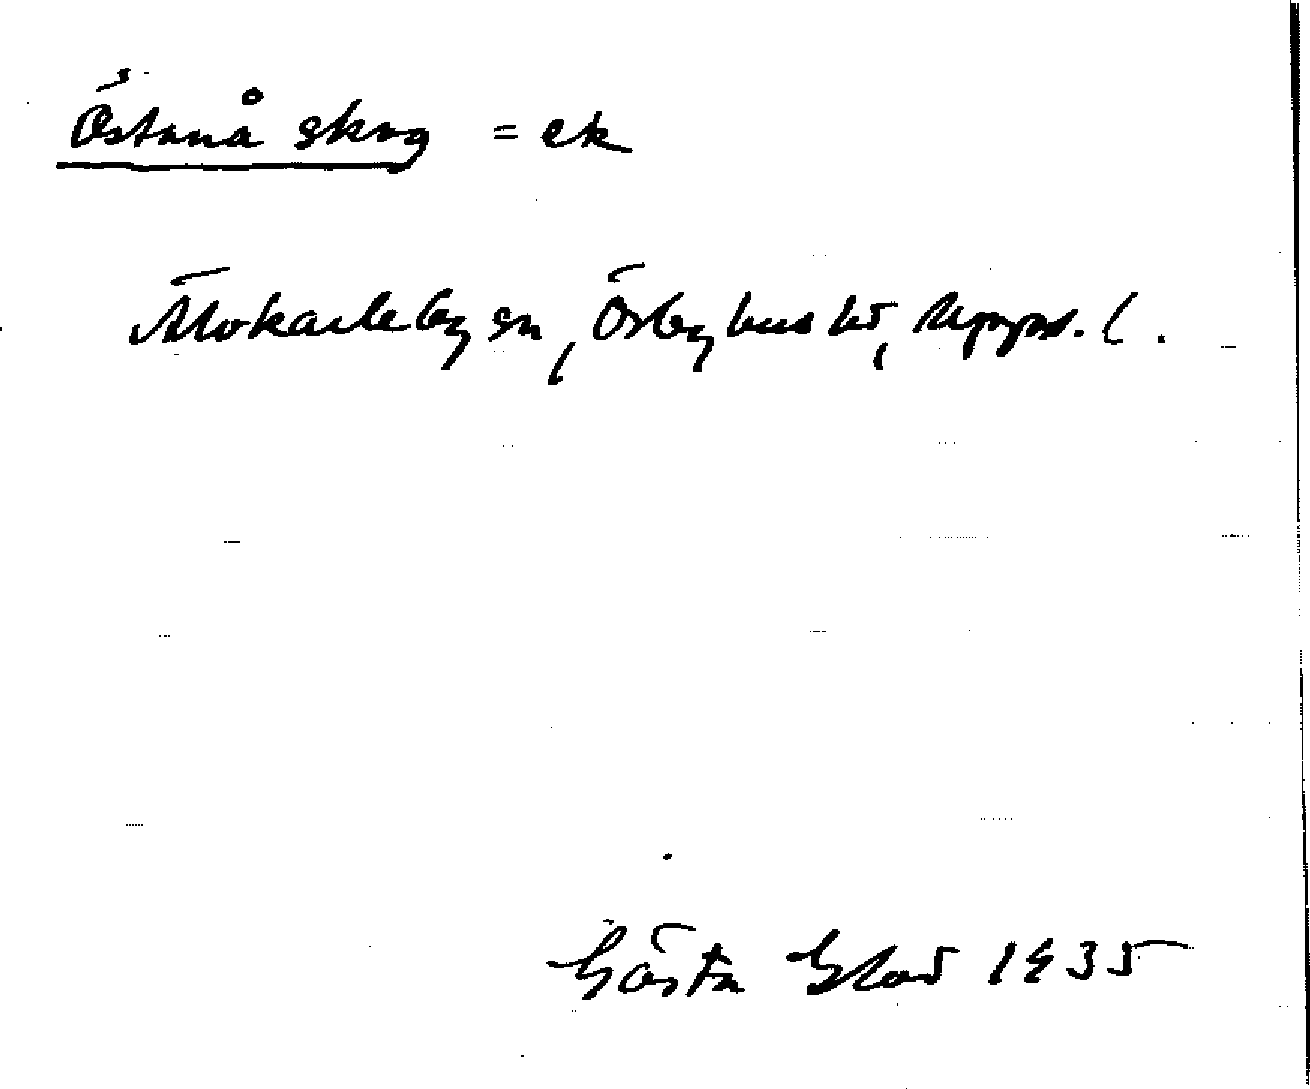 Östanå skog = ek
Älvkarleby sn, Örbyhus hd, Upps. l.
Gösta Glad 1935